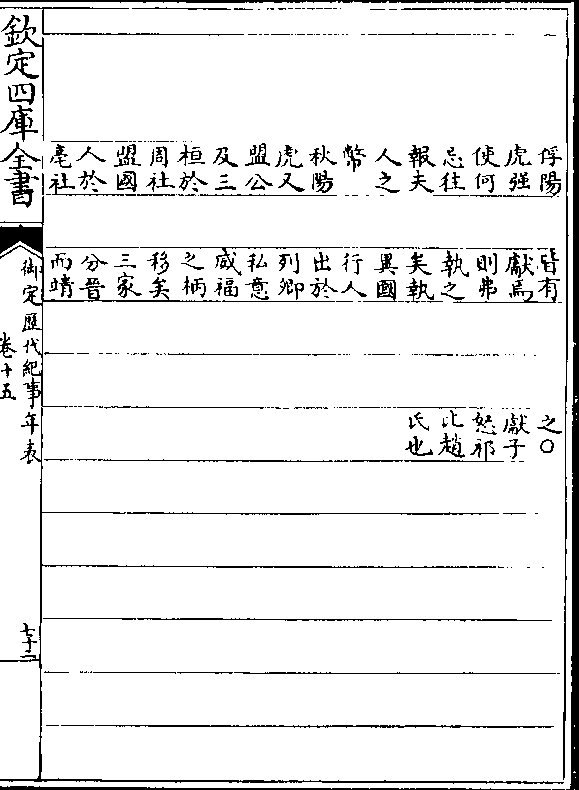 俘陽
虎强
使何
忌往
報夫
人之
幣
秋陽
虎又
盟公
及三
桓於
周社
盟國
人於
亳社
皆有
獻焉
則弗
執之
矣執
異國
行人
出於
列卿
私意
威福
之柄
移矣
三家
分晉
而靖
之○
獻子
怒祁
比趙
氏也
欽定四庫全書
御定歷代紀事年表
卷十五
七十二